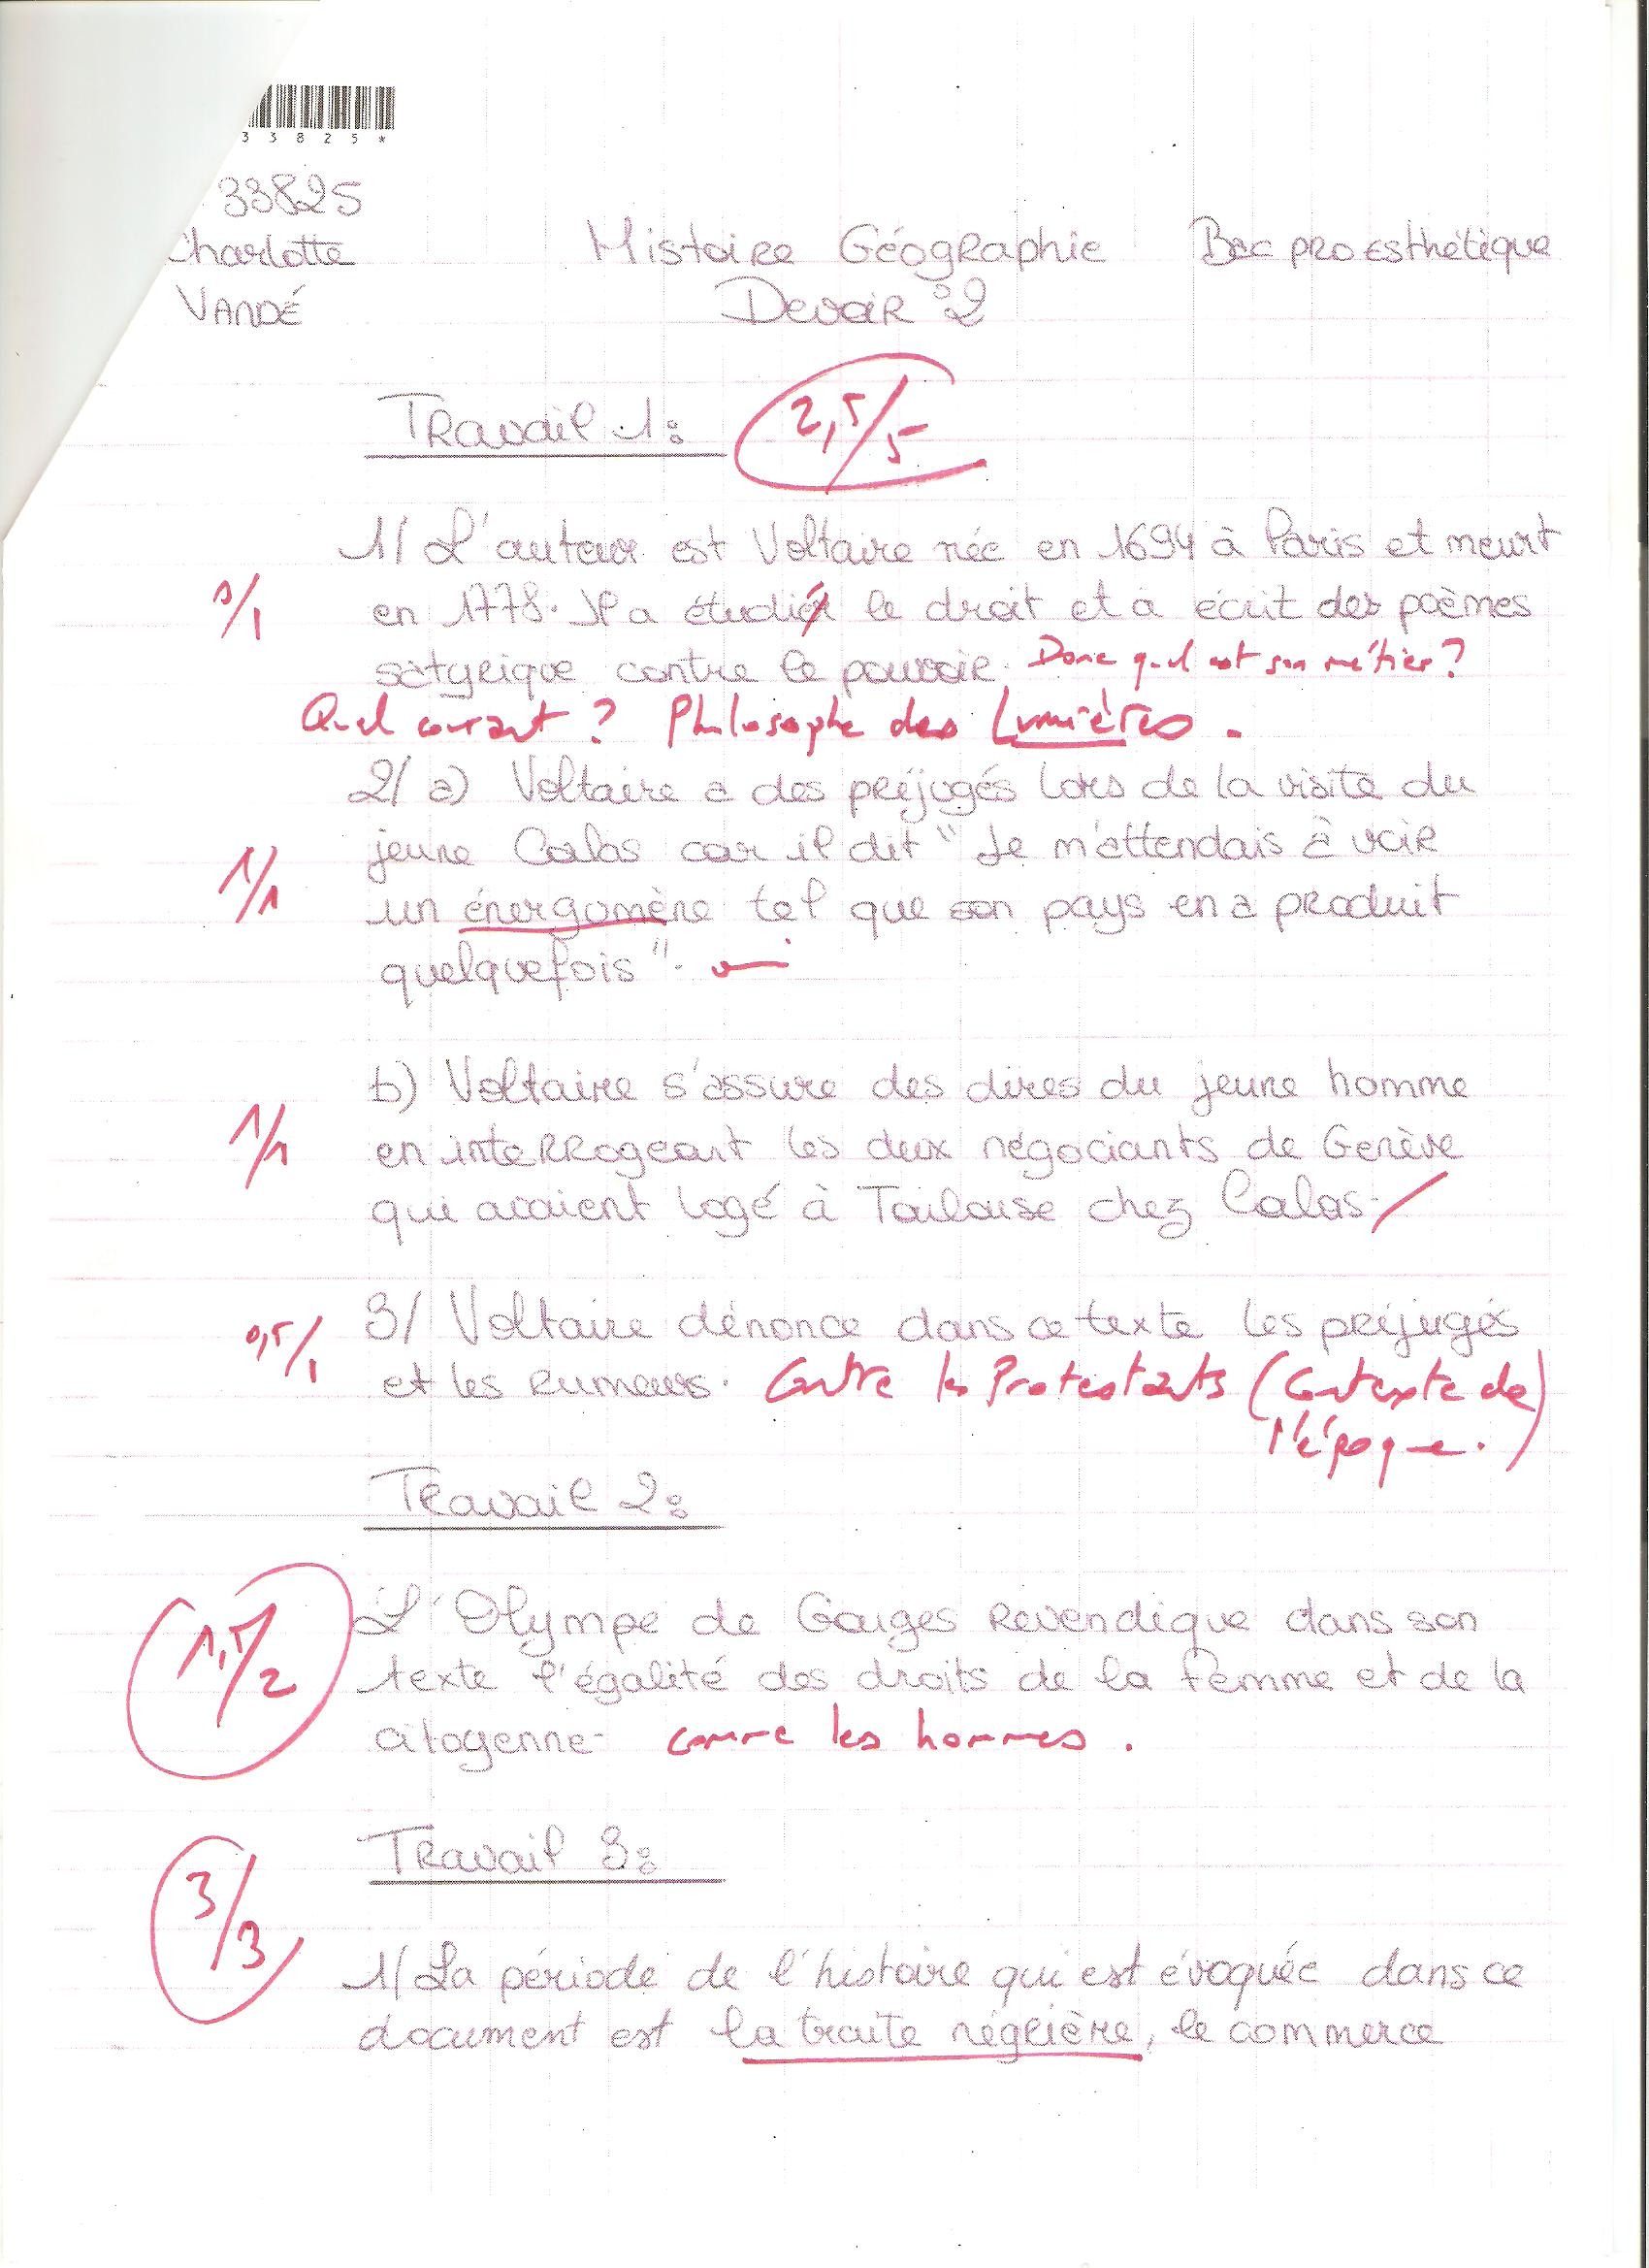 3 3 8 2 5 *
33825
Charlotte
VANDÉ
Histoire Géographie Bac pro Esthétique
Devoir °2
Travail 1:
2,5/5
1/ L'auteur est Voltaire née en 1694 à Paris et meurt
0/1
en 1778. Il a étudier le droit et a écrit des poèmes
satyrique contre le pouvoir. Donc quel est son métier?
Quel courant? Philosophe des Lumières.
2/ a) Voltaire a des préjugés lors de la visite du
jeune Calas car il dit "Je m'attendais à voir
1/1
un énergomène tel que son pays en a produit
quelquefois".
b) Voltaire s'assure des dires du jeune homme
1/1
en interrogeant les deux négociants de Genève
qui avaient logé à Toulouse chez Calas.
0,5/1
3/ Voltaire dénonce dans ce texte les préjugés
et les rumeurs. Contre les Protestants (Contexte de
l'époque.)
Travail 2:
1,5/2
L'Olympe de Gouges revendique dans son
texte l'égalité des droits de la femme et de la
citoyenne. comme les hommes.
Travail 3:
3/3
1/ La période de l'histoire qui est évoquée dans ce
document est la traite négrière, le commerce